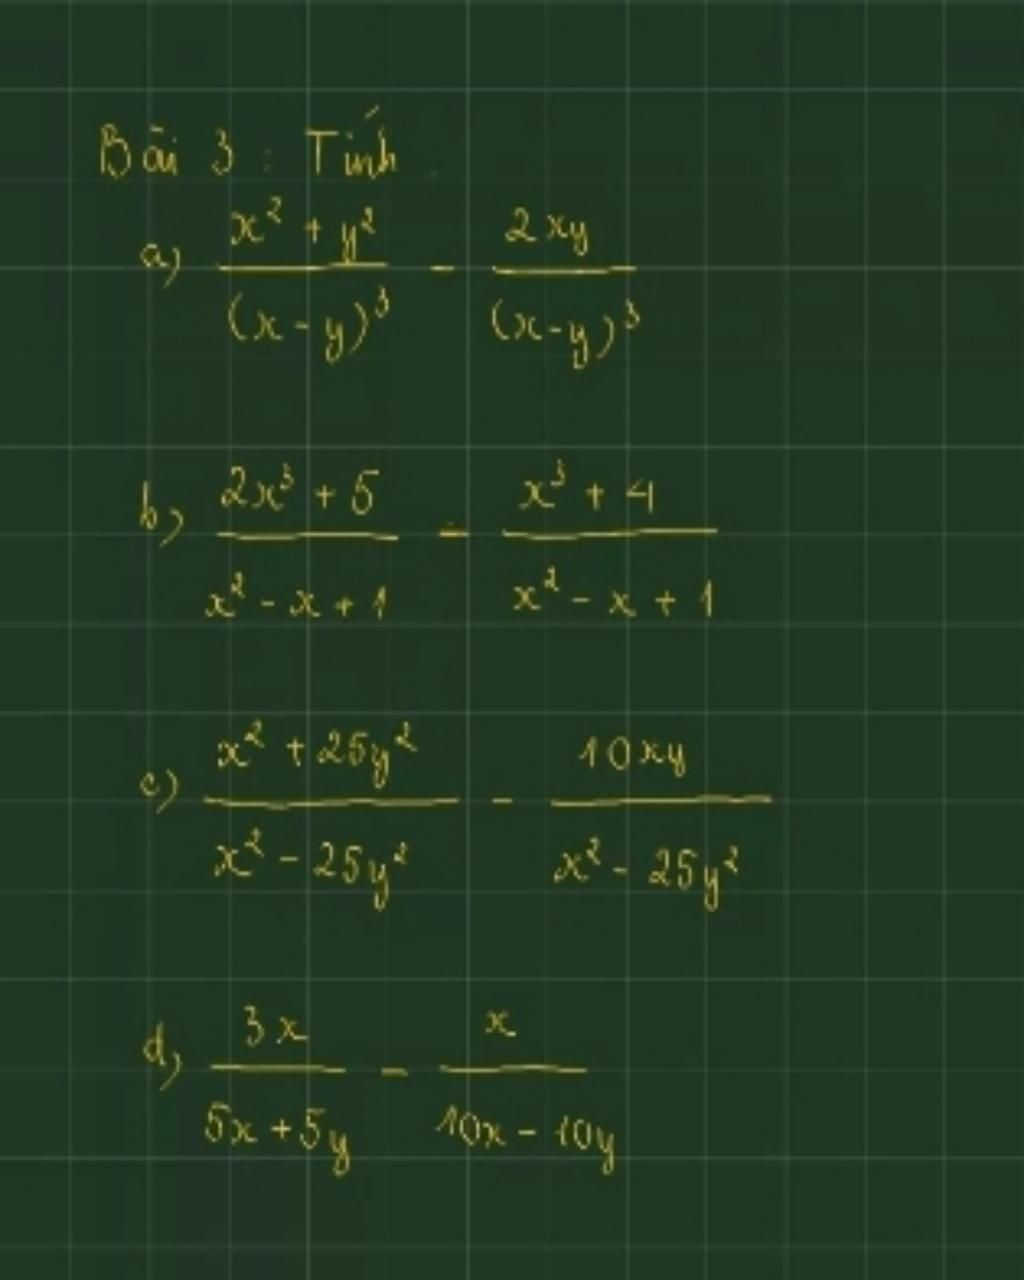 Bài 3 : Tính
a) \frac{x² + y²}{(x - y)³} - \frac{2xy}{(x-y)³}
b) \frac{2x³ + 5}{x² - x + 1} - \frac{x³ + 4}{x² - x + 1}
c) \frac{x² + 25y²}{x² - 25y²} - \frac{10xy}{x² - 25y²}
d) \frac{3x}{5x + 5y} - \frac{x}{10x - 10y}